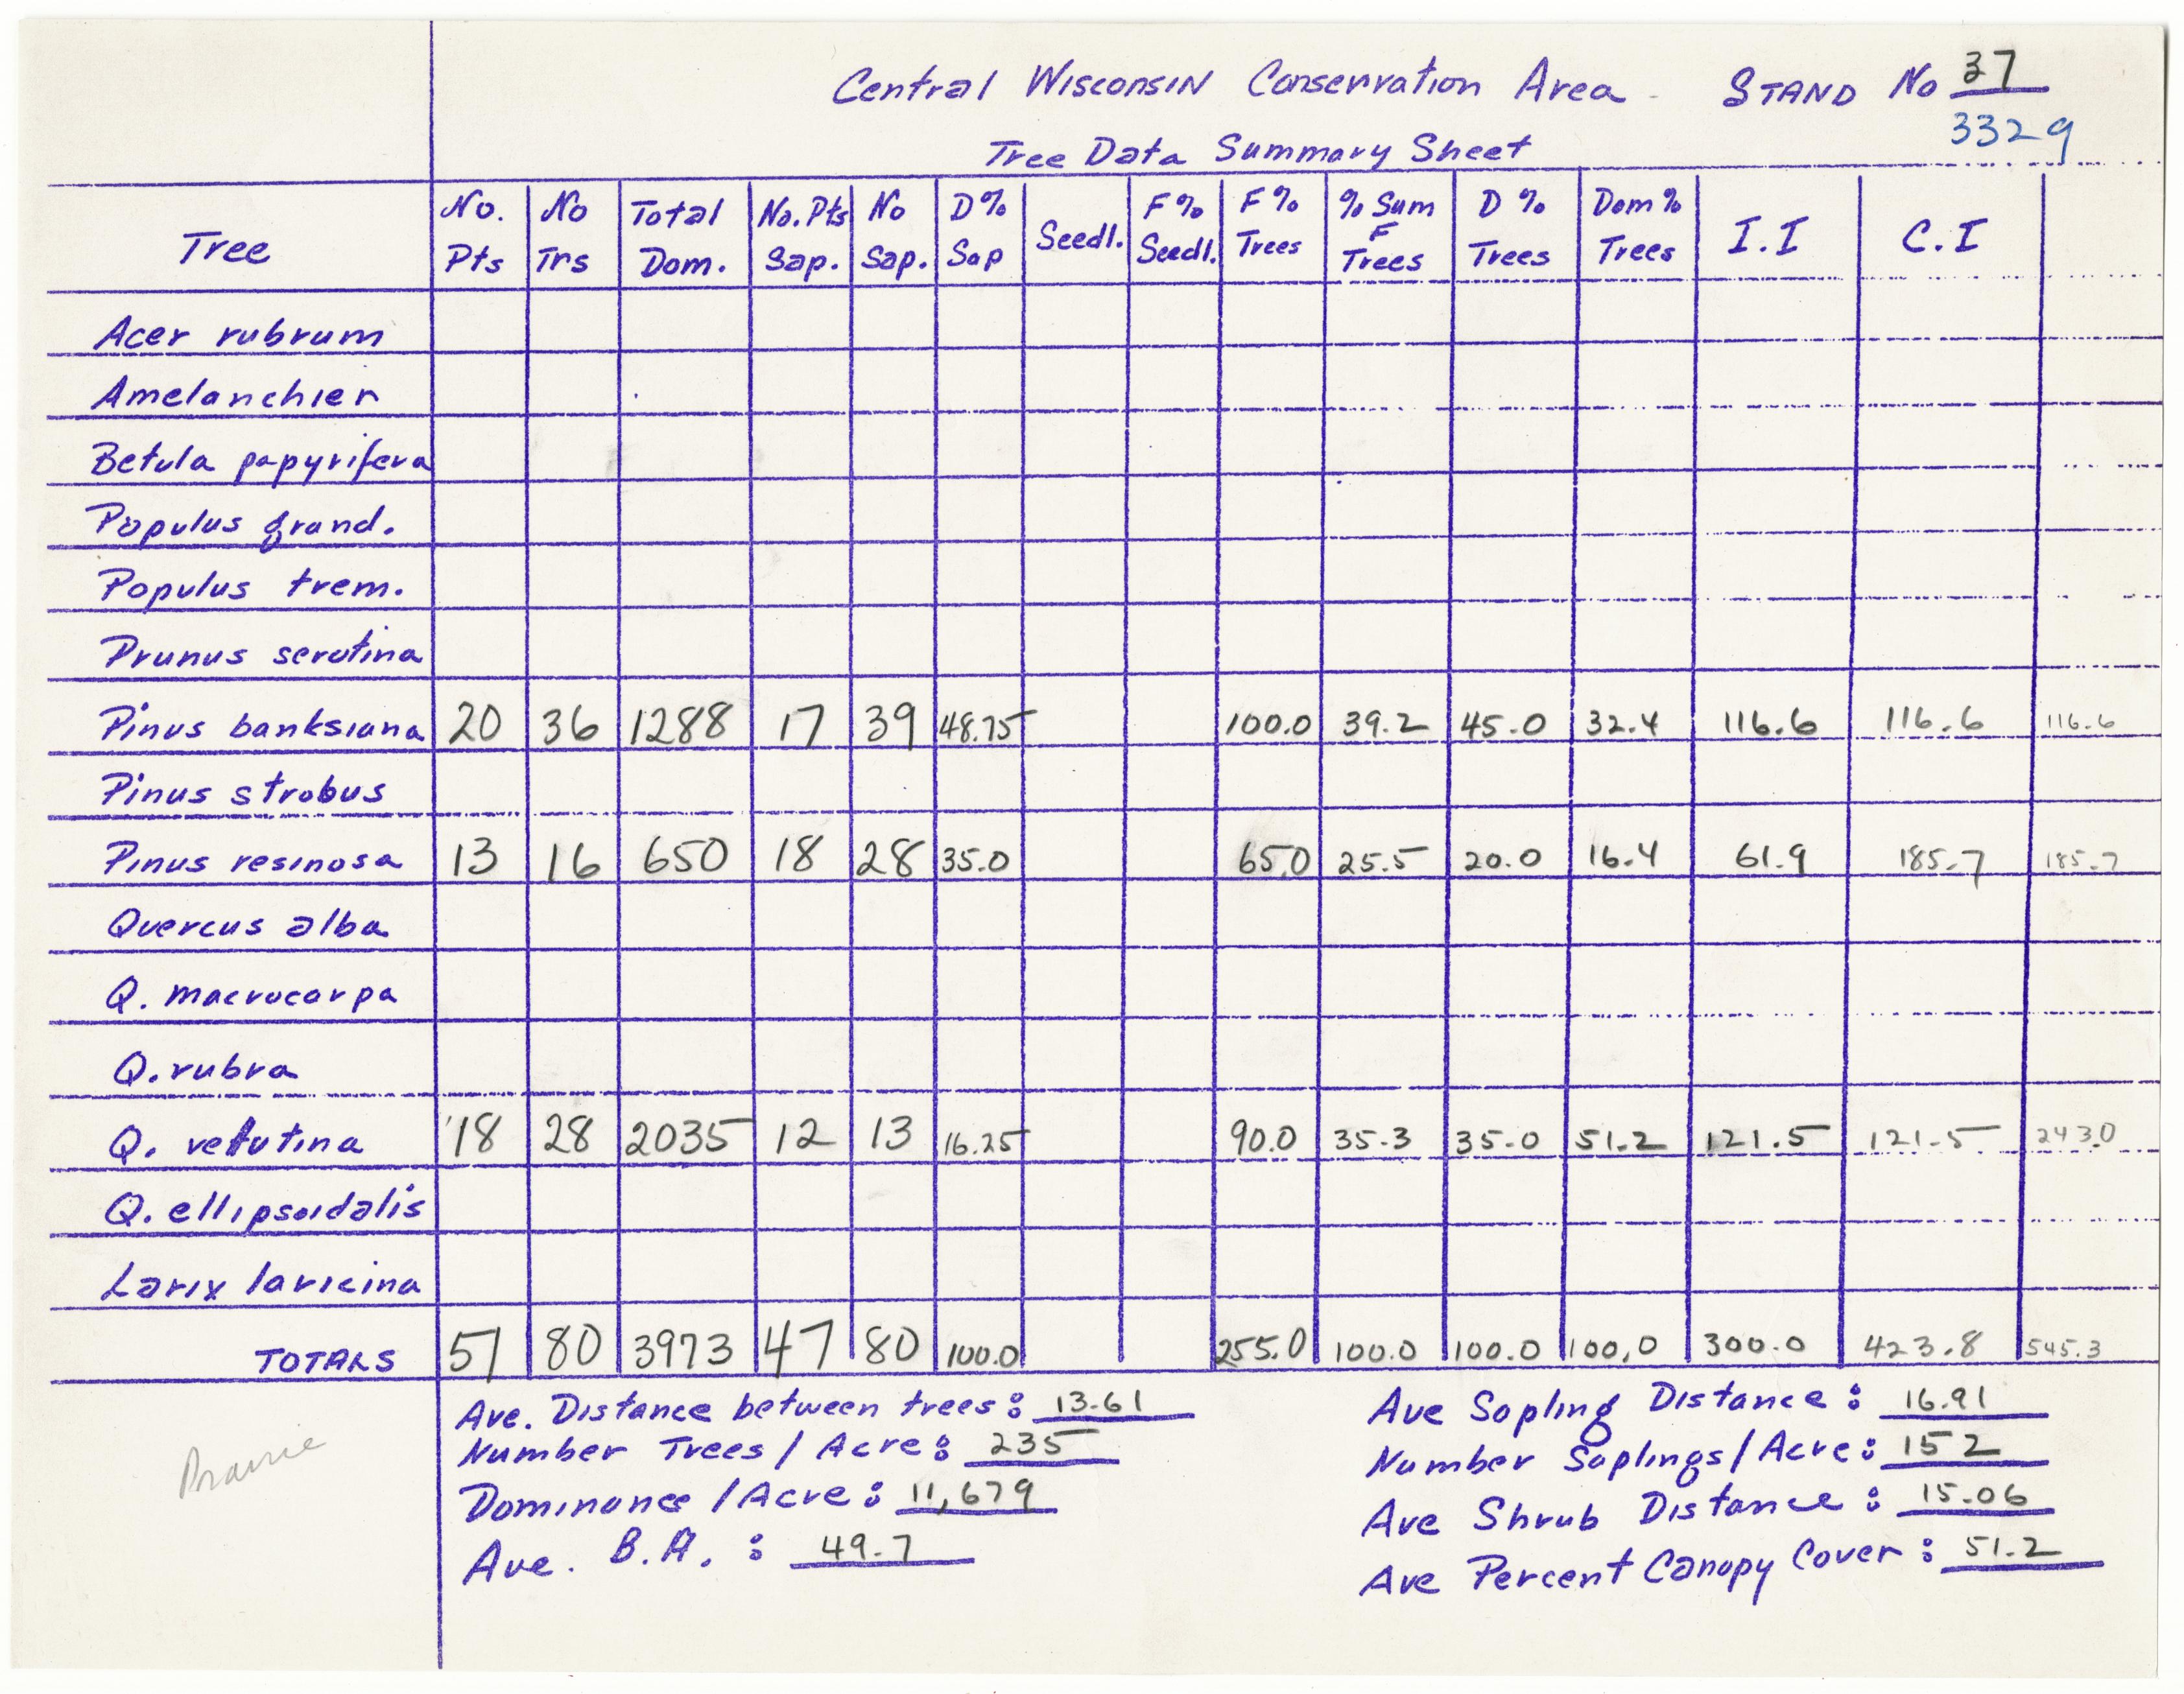 Central Wisconsin Conservation Area - STAND No 37
3329
Tree Data Summary Sheet
Tree No. Pts No Trs Total Dom. No. Pts Sap. No Sap. D% Sap Seedl. F% Seedl. F% Trees % Sum F Trees D % Trees Dom % Trees I.I C.I
Acer rubrum
Amelanchier
Betula papyrifera
Populus grand.
Populus trem.
Prunus serotina
Pinus banksiana 20 36 1288 17 39 48.75 100.0 39.2 45.0 32.4 116.6 116.6 116.6
Pinus strobus
Pinus resinosa 13 16 650 18 28 35.0 65.0 25.5 20.0 16.4 61.9 185.7 185.7
Quercus alba
Q. macrocarpa
Q. rubra
Q. velutina 18 28 2035 12 13 16.25 90.0 35.3 35.0 51.2 121.5 121.5 243.0
Q. ellipsoidalis
Larix laricina
TOTALS 51 80 3973 47 80 100.0 255.0 100.0 100.0 100.0 300.0 423.8 545.3
Ave. Distance between trees: 13.61
Number Trees / Acre: 235
Dominance / Acre: 11,679
Ave. B.A. : 49.7
Ave Sapling Distance: 16.91
Number Saplings / Acre: 152
Ave Shrub Distance: 15.06
Ave Percent Canopy Cover: 51.2
Prairie